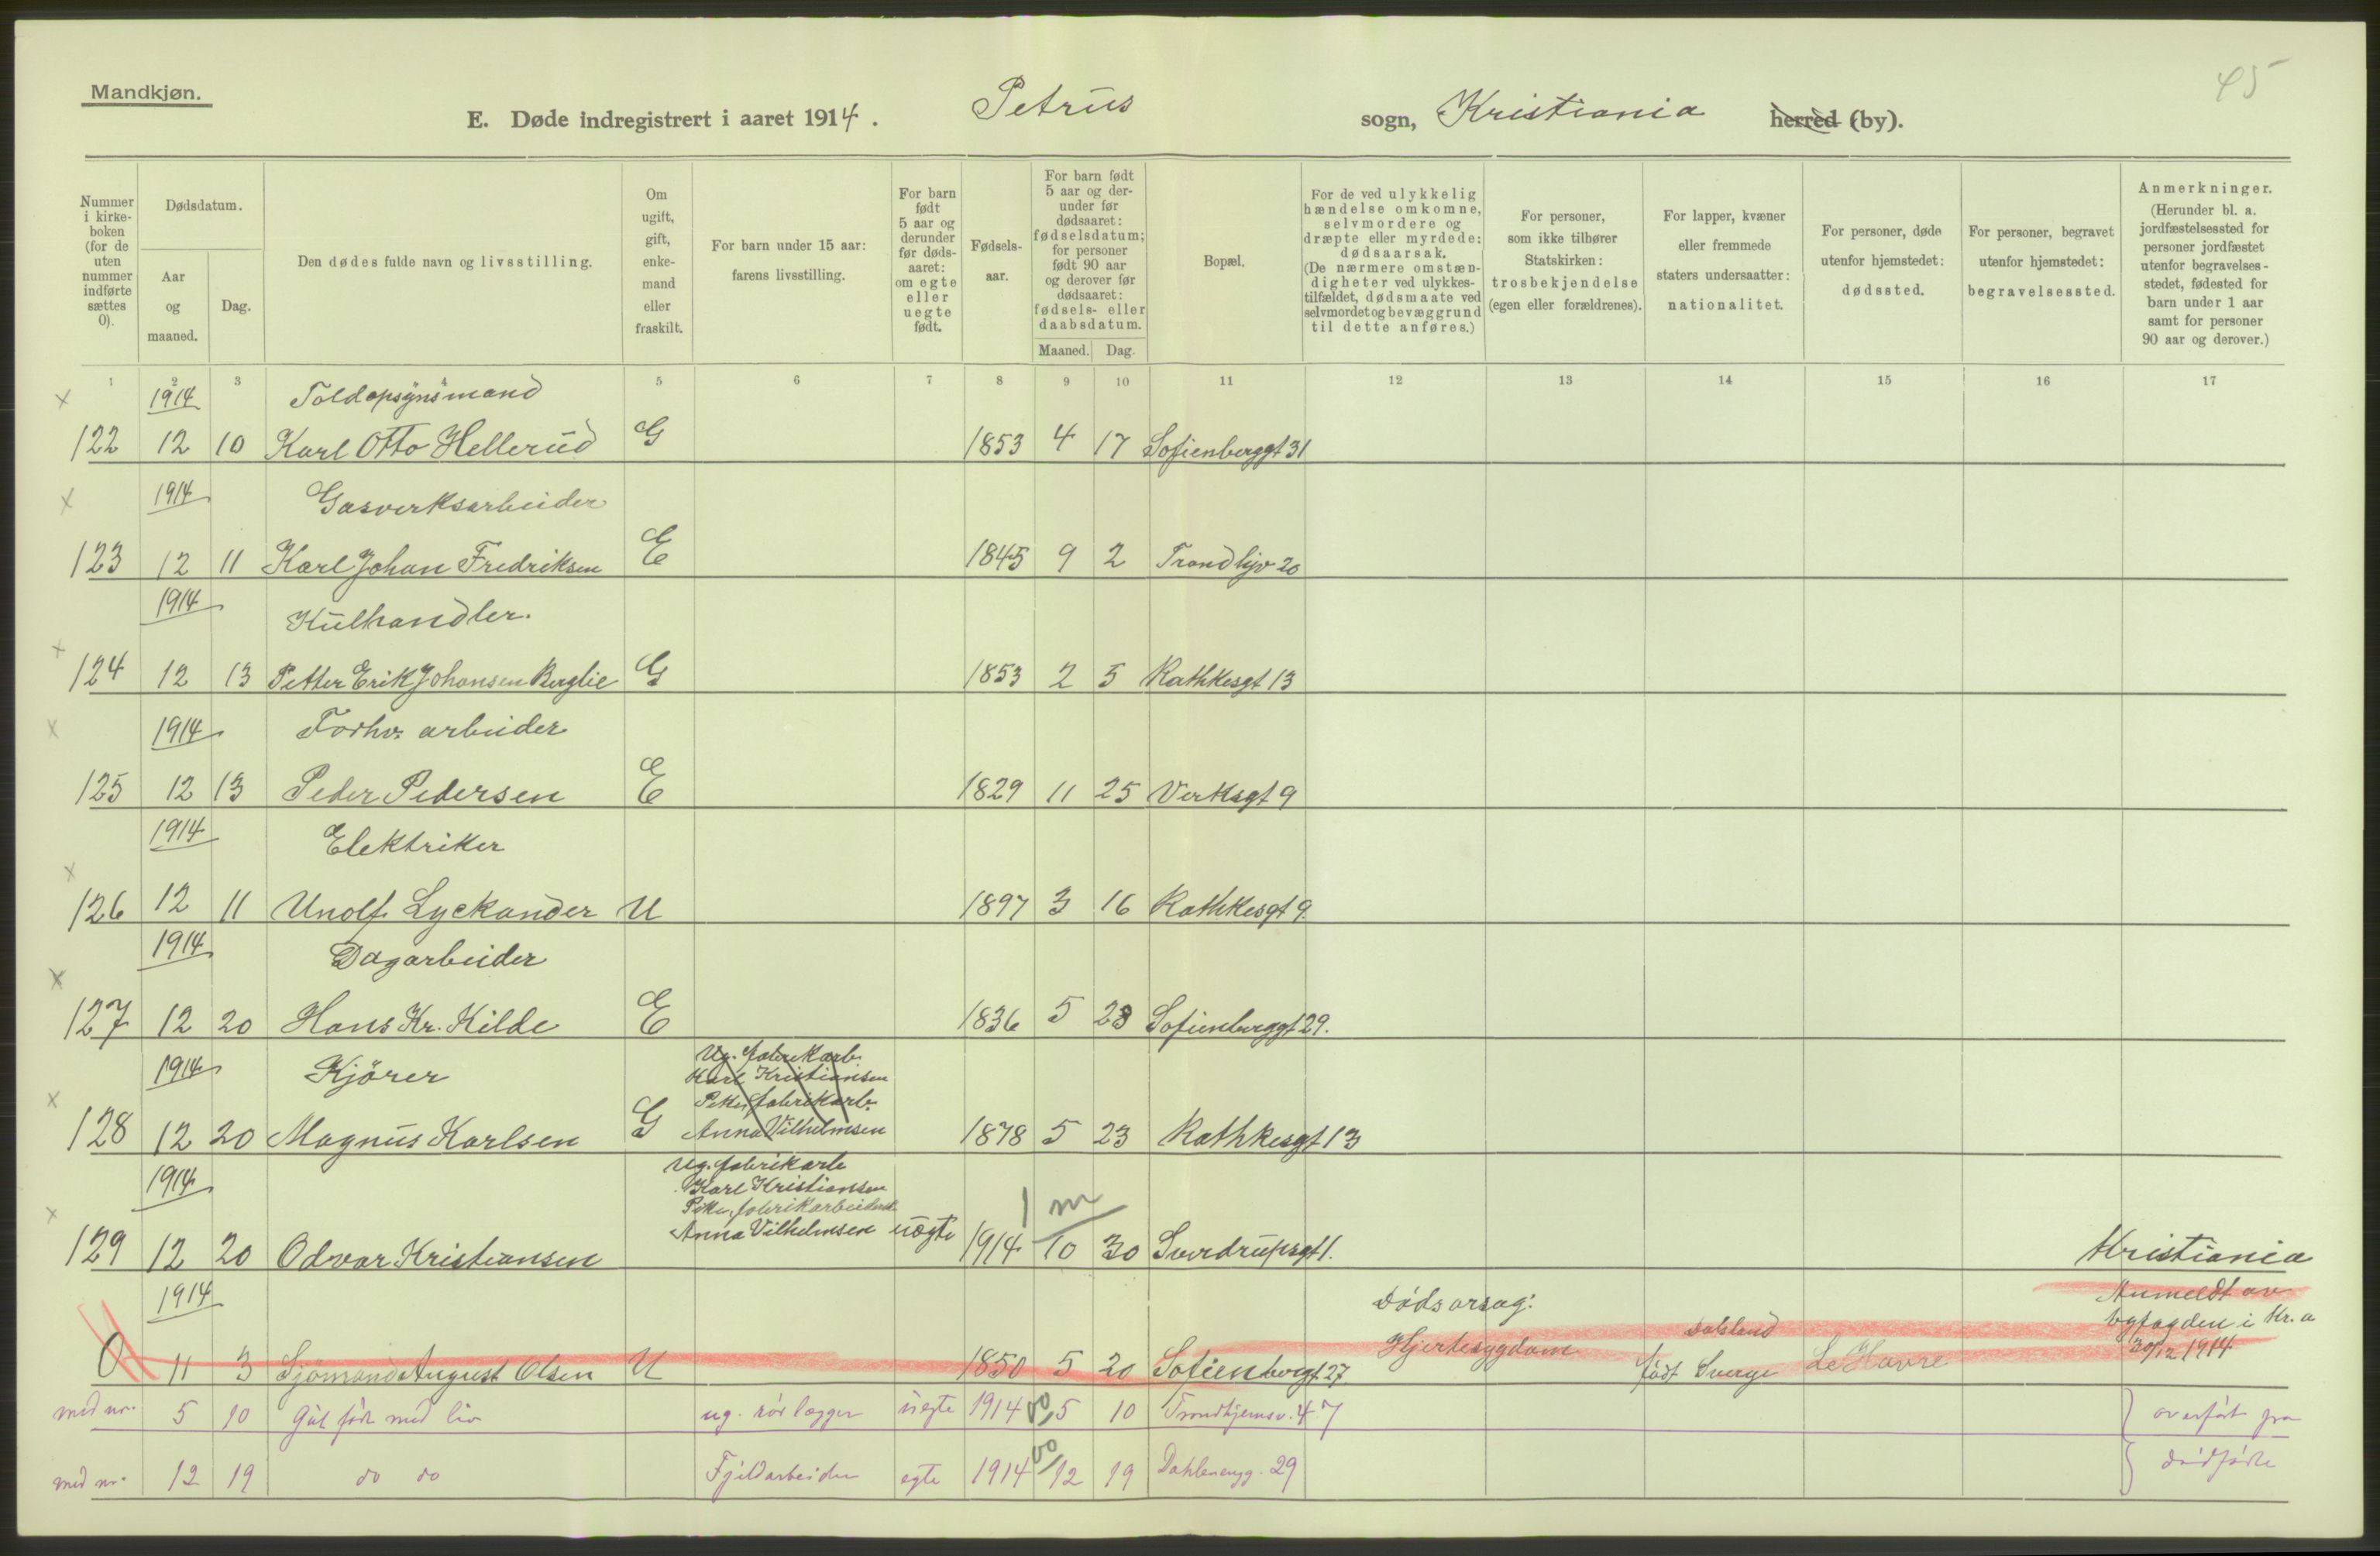 45
Mandkjøn.
E. Døde indregistrert i aaret 1914. Petrus sogn, Kristiania herred (by).
Nummer i kirke-boken (for de uten nummer indførte sættes 0).
Dødsdatum.
Aar og maaned.
Dag.
Den dødes fulde navn og livsstilling.
Om ugift, gift, enke-mand eller fraskilt.
For barn under 15 aar: farens livsstilling.
For barn født 5 aar og derunder før døds-aaret: om egte eller uegte født.
Fødsels-aar.
For barn født 5 aar og der-under før dødsaaret: fødselsdatum; for personer født 90 aar og derover før dødsaaret: fødsels- eller daabsdatum.
Maaned. Dag.
Bopæl.
For de ved ulykkelig hændelse omkomne, selvmordere og dræpte eller myrdede: dødsaarsak. (De nærmere omstæn-digheter ved ulykkes-tilfældet, dødsmaate ved selvmordet og bevæggrund til dette anføres.)
For personer, som ikke tilhører Statskirken: trosbekjendelse (egen eller forældrenes).
For lapper, kvæner eller fremmede staters undersaatter: nationalitet.
For personer, døde utenfor hjemstedet: dødssted.
For personer, begravet utenfor hjemstedet: begravelsessted.
Anmerkninger. (Herunder bl. a. jordfæstelsessted for personer jordfæstet utenfor begravelses-stedet, fødested for barn under 1 aar samt for personer 90 aar og derover.)
1 2 3 4 5 6 7 8 9 10 11 12 13 14 15 16 17
x 1914 Toldopsynsmand
122 12 10 Karl Otto Hellerud G 1853 4 17 Sofienberggt 31
x 1914 Gasverksarbeider
123 12 11 Karl Johan Fredriksen E 1845 9 2 Trondhjv 20
1914 Kulhandler.
x 124 12 13 Petter Erik Johansen Berglie G 1853 2 5 Rathkesgt 13
x 1914 Forhv. arbeider
125 12 13 Peder Pedersen E 1829 11 25 Verksgt 9
1914 Elektriker
x 126 12 11 Unolf Lyckander U 1897 3 16 Rathkesgt 9.
1914 Dagarbeider
x 127 12 20 Hans Kr. Kilde E 1836 5 23 Sofienberggt 29.
1914 Kjörer Ug. fabrikarb. Karl Kristiansen
x 128 12 20 Magnus Karlsen G Pike, fabrikarb. Anna Vilhelmsen 1878 5 23 Rathkesgt 13
1914 Ug. fabrikarb Karl Kristiansen
x 129 12 20 Odvar Kristiansen Pike, fabrikarbeiderske Anna Vilhelmsen uegte 1914 1 m 10 30 Sverdrupsgt 1. Kristiania
1914 Dödsarsag: Anmeldt av
0 11 3 Sjömand August Olsen U 1850 5 20 Sofienbergt 27 Hjertesygdom Dalsland født Sverge Le Havre byfogden i Kr.a 30/12 1914
med nr. 5 10 Gut født med liv ug. rörlægger uegte 1914 00 5 10 Trondhjemsv. 47 overført fra
med nr. 12 19 do do Fjeldarbeider egte 1914 00 12 19 Dahlenengg. 29 dødfødte